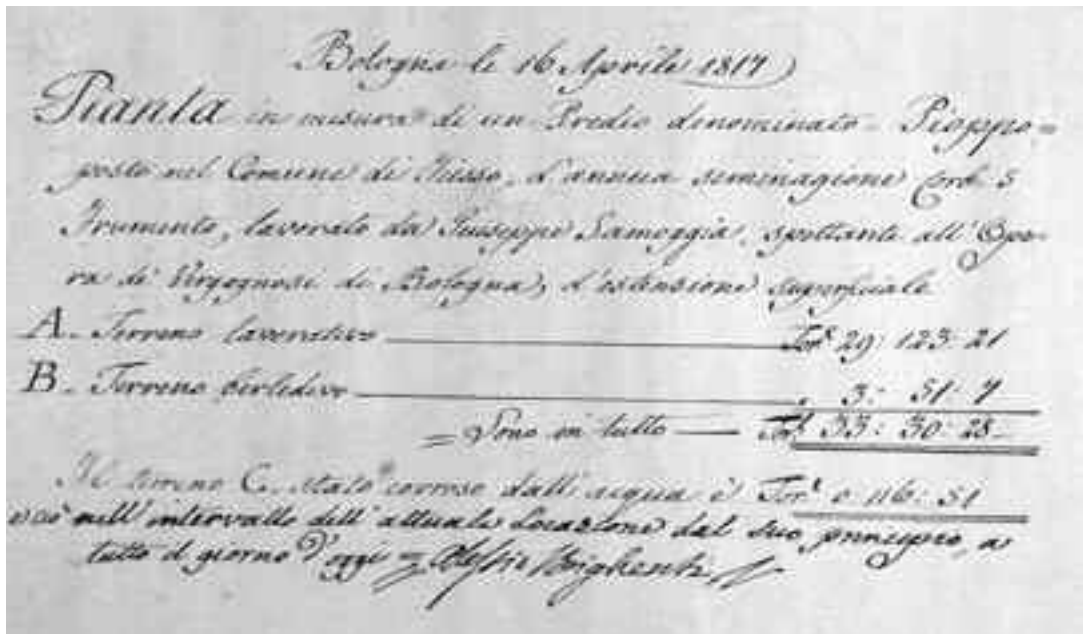 Bologna li 16 Aprile 1817
Pianta in misura di un Predio denominato = Pioppo =
posto nel Comune di Tiesso, d'annua seminagione Corb. 5
Frumento, lavorato da Giuseppe Samoggia, spettante all'Ope=
ra de' Vergognosi di Bologna, d'estensione superficiale
A. Terreno lavorativo Tor.e 29: 123: 21
B. Terreno " 3: 51: 7
= Sono in tutto Tor.e 33: 30: 28
Il terreno C. stato corroso dall'acqua è Tor.e 0 116: 51
e ciò nell'intervallo dell'attuale Locazione dal suo principio, a
tutto il giorno d'oggi = Alessio Brighenti